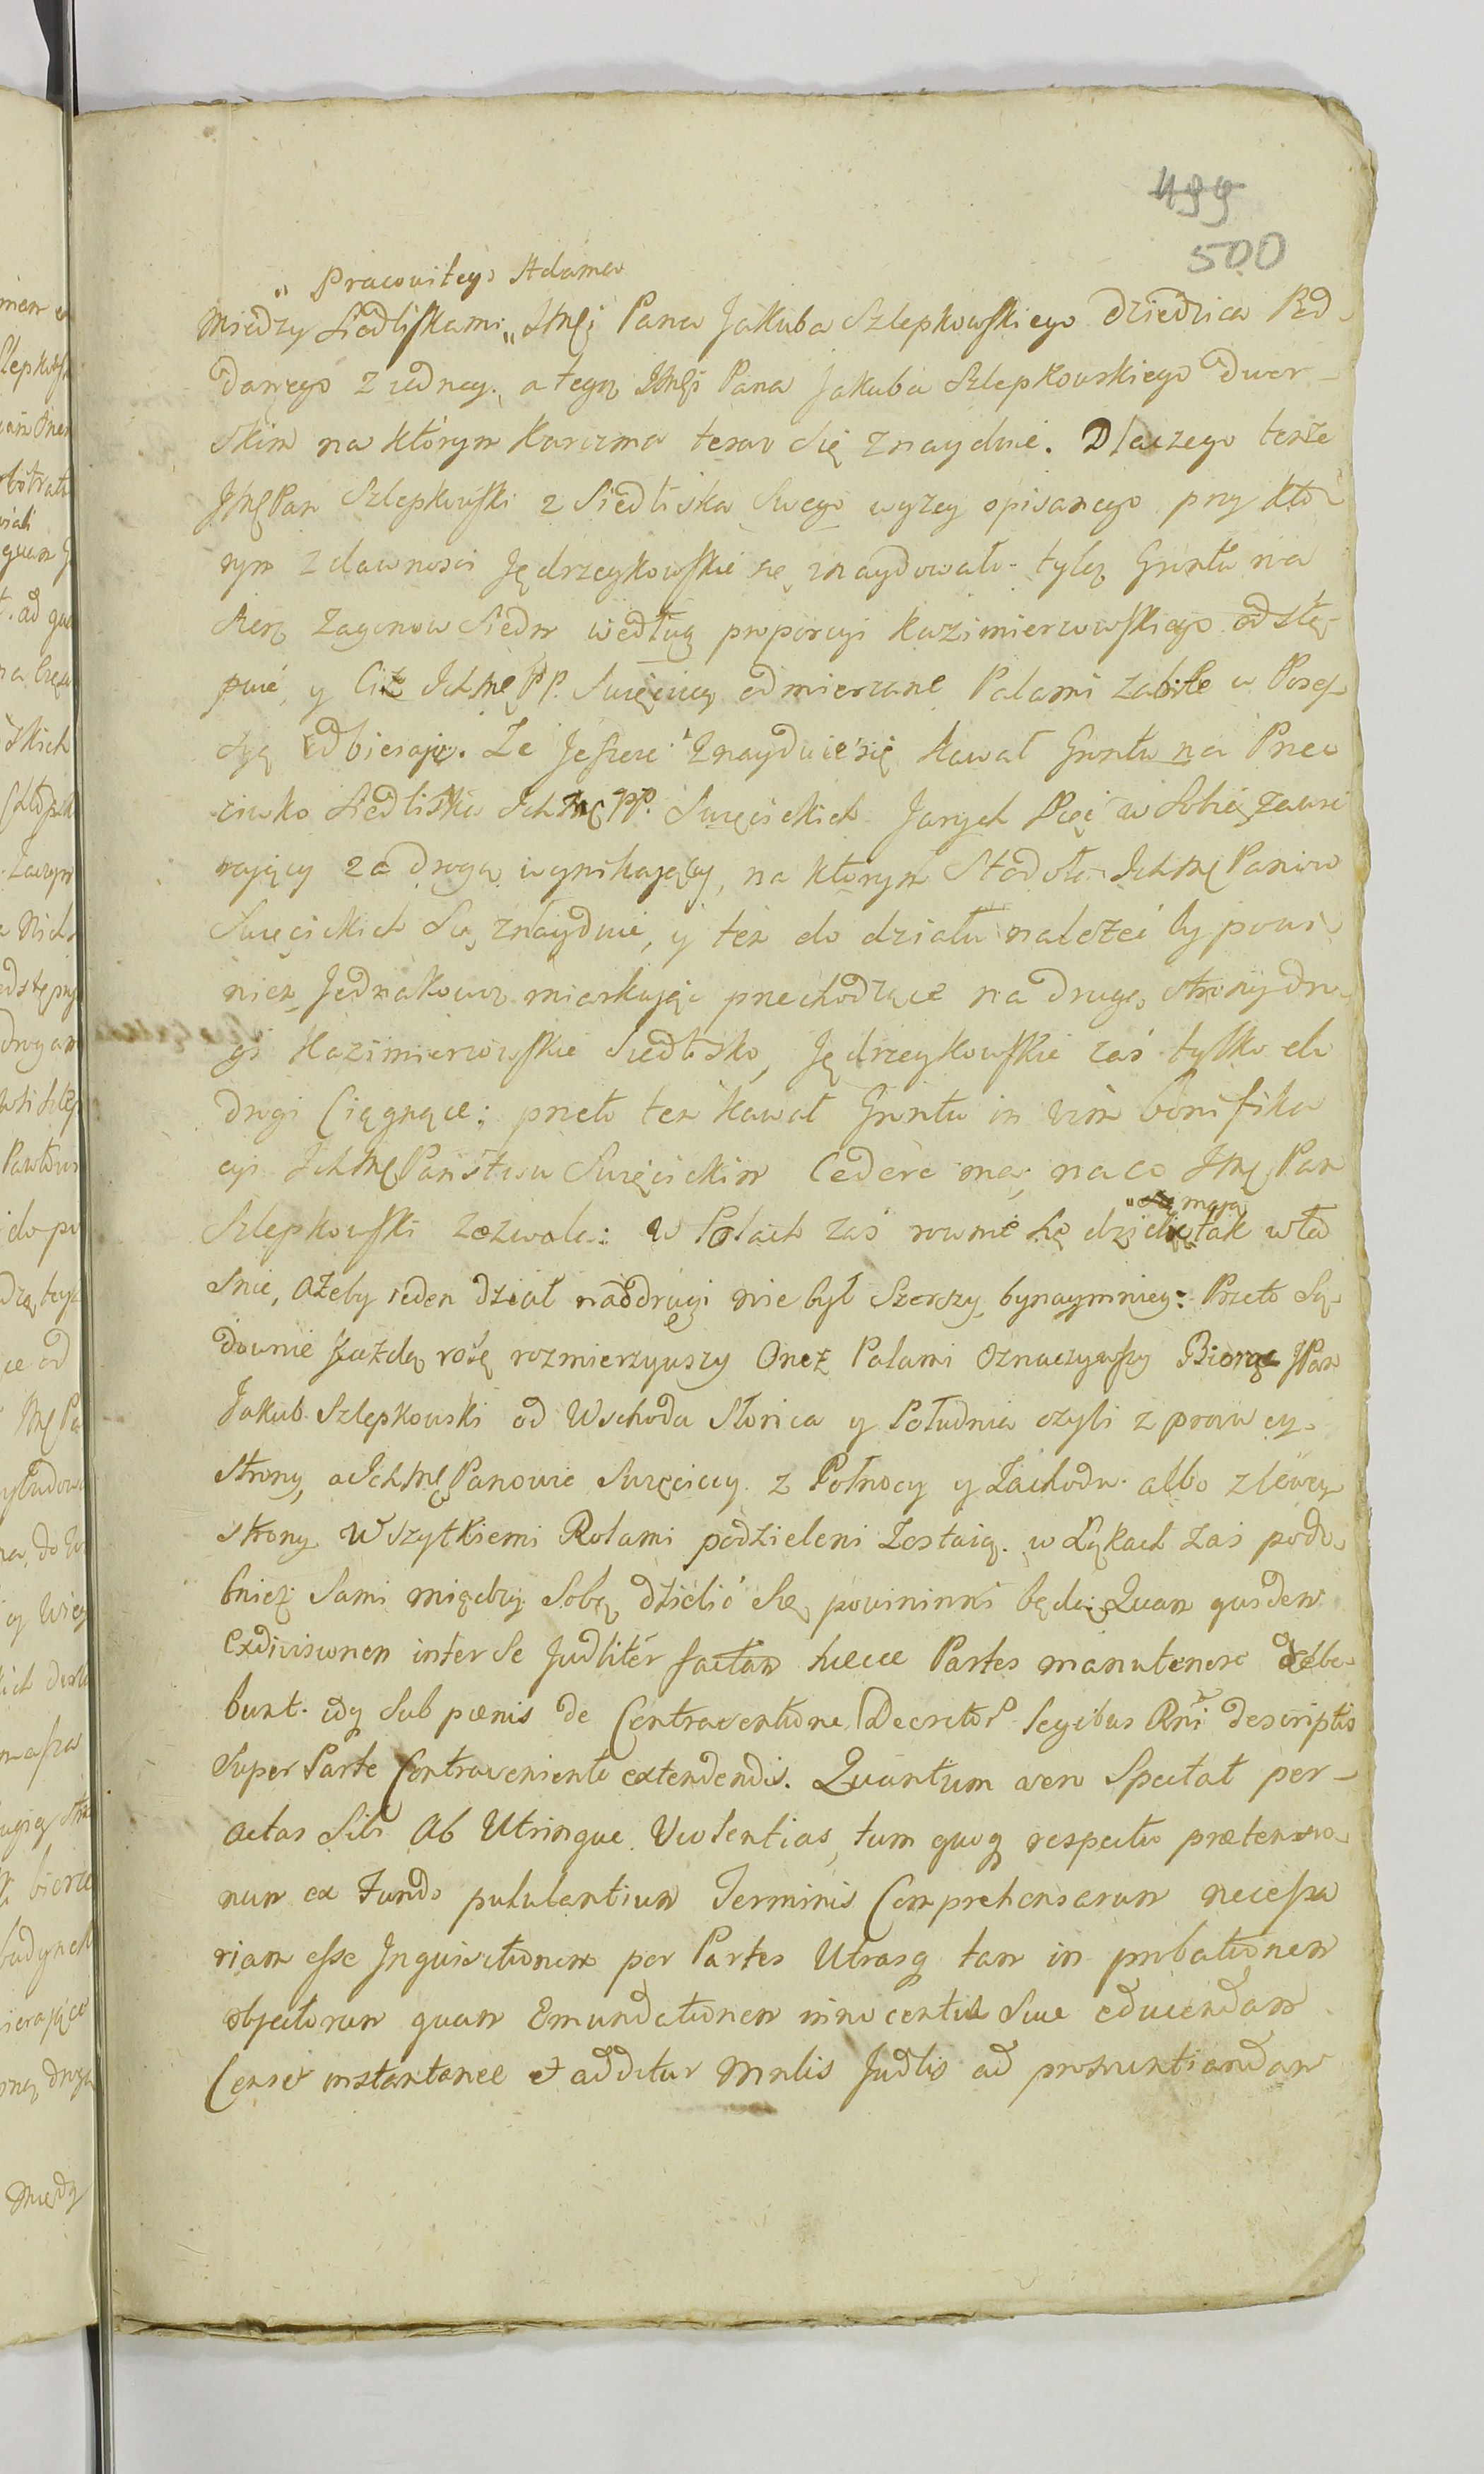 499
500
„ Pracowitego Adama
między Siedliskami „ JMĘi Pana Jakuba Szlepkowskiego dziedzica Pod-
danego z iedney. a tegoż JMĘi Pana Jakuba Szlepkowskiego dwor-
skim na którym Karczma teraz się znayduie. Dlaczego tenże
JMĘ Pan Szlepkowski z Siedliska Swego wyzey opisanego przy kto-
rym z dawnosci Jędrzeykowskie się znaydowało tylęż Gruntu na
Szerz Zagonow Siedm według proporcyi Kazimierzowskiego odstę-
puie, y Ciż IchMę PP. Swięciccy odmierzane Palami zabite w Posses-
syą odbieraią. Że Jeszcze znayduie się kawał Gruntu na Prze-
ciwko Siedliska IchMę PP. Swięcickich Jarzych Pięć w Sobie zawie
raiący za drogą wynikaiący, na ktorym Stodoła IchMę Panow
Swięcickich się znayduie, y ten do działu należeć by powi-
nien, Jednakowoż miarkuiąc przechodzące na drugą stronę dro-
gi Kazimierzowskie Siedlisko, Jędrzeykowskie zaś tylko do
drogi Ciągnące; przeto ten kawał Gruntu in vim bonifika
cyi IchMę Państwu Swięcickim Cedere ma, na co JMę Pan
Szlepkowski zezwala: w Polach zaś rownie się dzielić „ maią tak wła
snie, ażeby ieden dział nad drugi nie był Szerszy bynaymniey: Przeto Są-
downie każdą rolę rozmierzywszy Oneż Palami Oznaczywszy Biorąc JPan
Jakub Szlepkowski od Wschodu Słońca y Południa czyli z prawey
strony, a IchMę Panowie Swięciccy z Połnocy y Zachodu albo z lewey
strony Wszytkiemi Rolami podzieleni Zostaią. w Łąkach zas podo-
bnież Sami między Sobą dzielić Się powininni będą. Quam quidem
Exdivisionem inter Se Judltér factam hecce Partes manutenere debe-
bunt. idq Sub pœnis de Contraventione Decretor Legibus Rni descriptis
Super Parte Contraveniente extendendis. Quantum vero Spectat per-
actas Sibi Ab Utrinque Violentias, tum quoq respectu prætensio-
num ex Fundo pululantium Terminis Comprehensarum necessa
riam esse Inquisitionem per Partes Utrasq tam in probationem
objectorum quam Emundationem innocentiæ Suæ educendam
Censet instantanee et additur Mnlis Judlis ad pronuntiandam